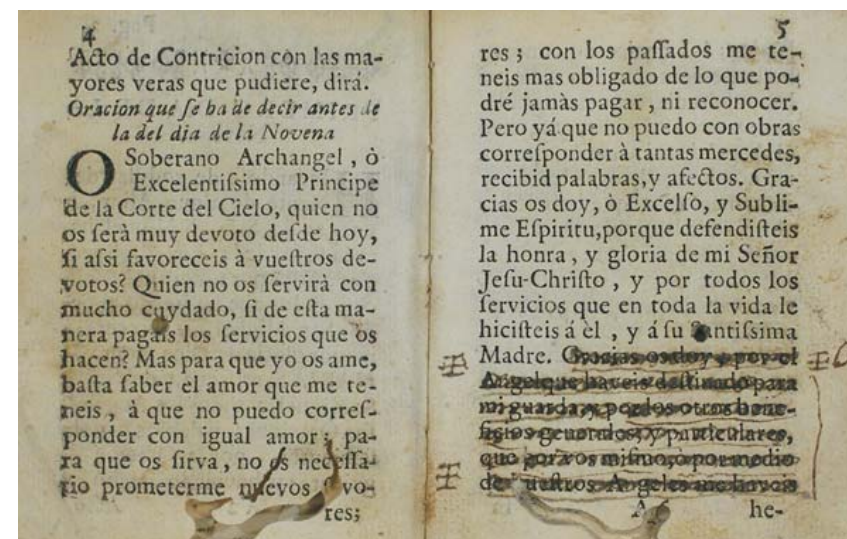 4
Acto de Contricion con las ma-
yores veras que pudiere, dirá.
Oracion que ſe ha de decir antes de
la del dia de la Novena
O Soberano Archangel, ò
Excelentiſsimo Principe
de la Corte del Cielo, quien no
os ſerà muy devoto deſde hoy,
ſi aſsi favoreceis à vueſtros de-
votos? Quien no os ſervirà con
mucho cuydado, ſi de eſta ma-
nera pagais los ſervicios que os
hacen? Mas para que yo os ame,
baſta ſaber el amor que me te-
neis, à que no puedo correſ-
ponder con igual amor; pa-
ra que os ſirva, no es neceſſa-
rio prometerme nuevos favo-
res;
5
res; con los paſſados me te-
neis mas obligado de lo que po-
dré jamàs pagar, ni reconocer.
Pero yá que no puedo con obras
correſponder à tantas mercedes,
recibid palabras, y afectos. Gra-
cias os doy, ò Excelſo, y Subli-
me Eſpiritu, porque defendiſteis
la honra, y gloria de mi Señor
Jeſu-Chriſto, y por todos los
ſervicios que en toda la vida le
hiciſteis á èl, y á ſu Santiſsima
Madre. Gracias os doy, por el
Angel que haveis deſtinado para
mi guarda, y por los otros bene-
ficios generales, y particulares,
que por vos miſmo, ò por medio
de vueſtros Angeles me haveis
he-